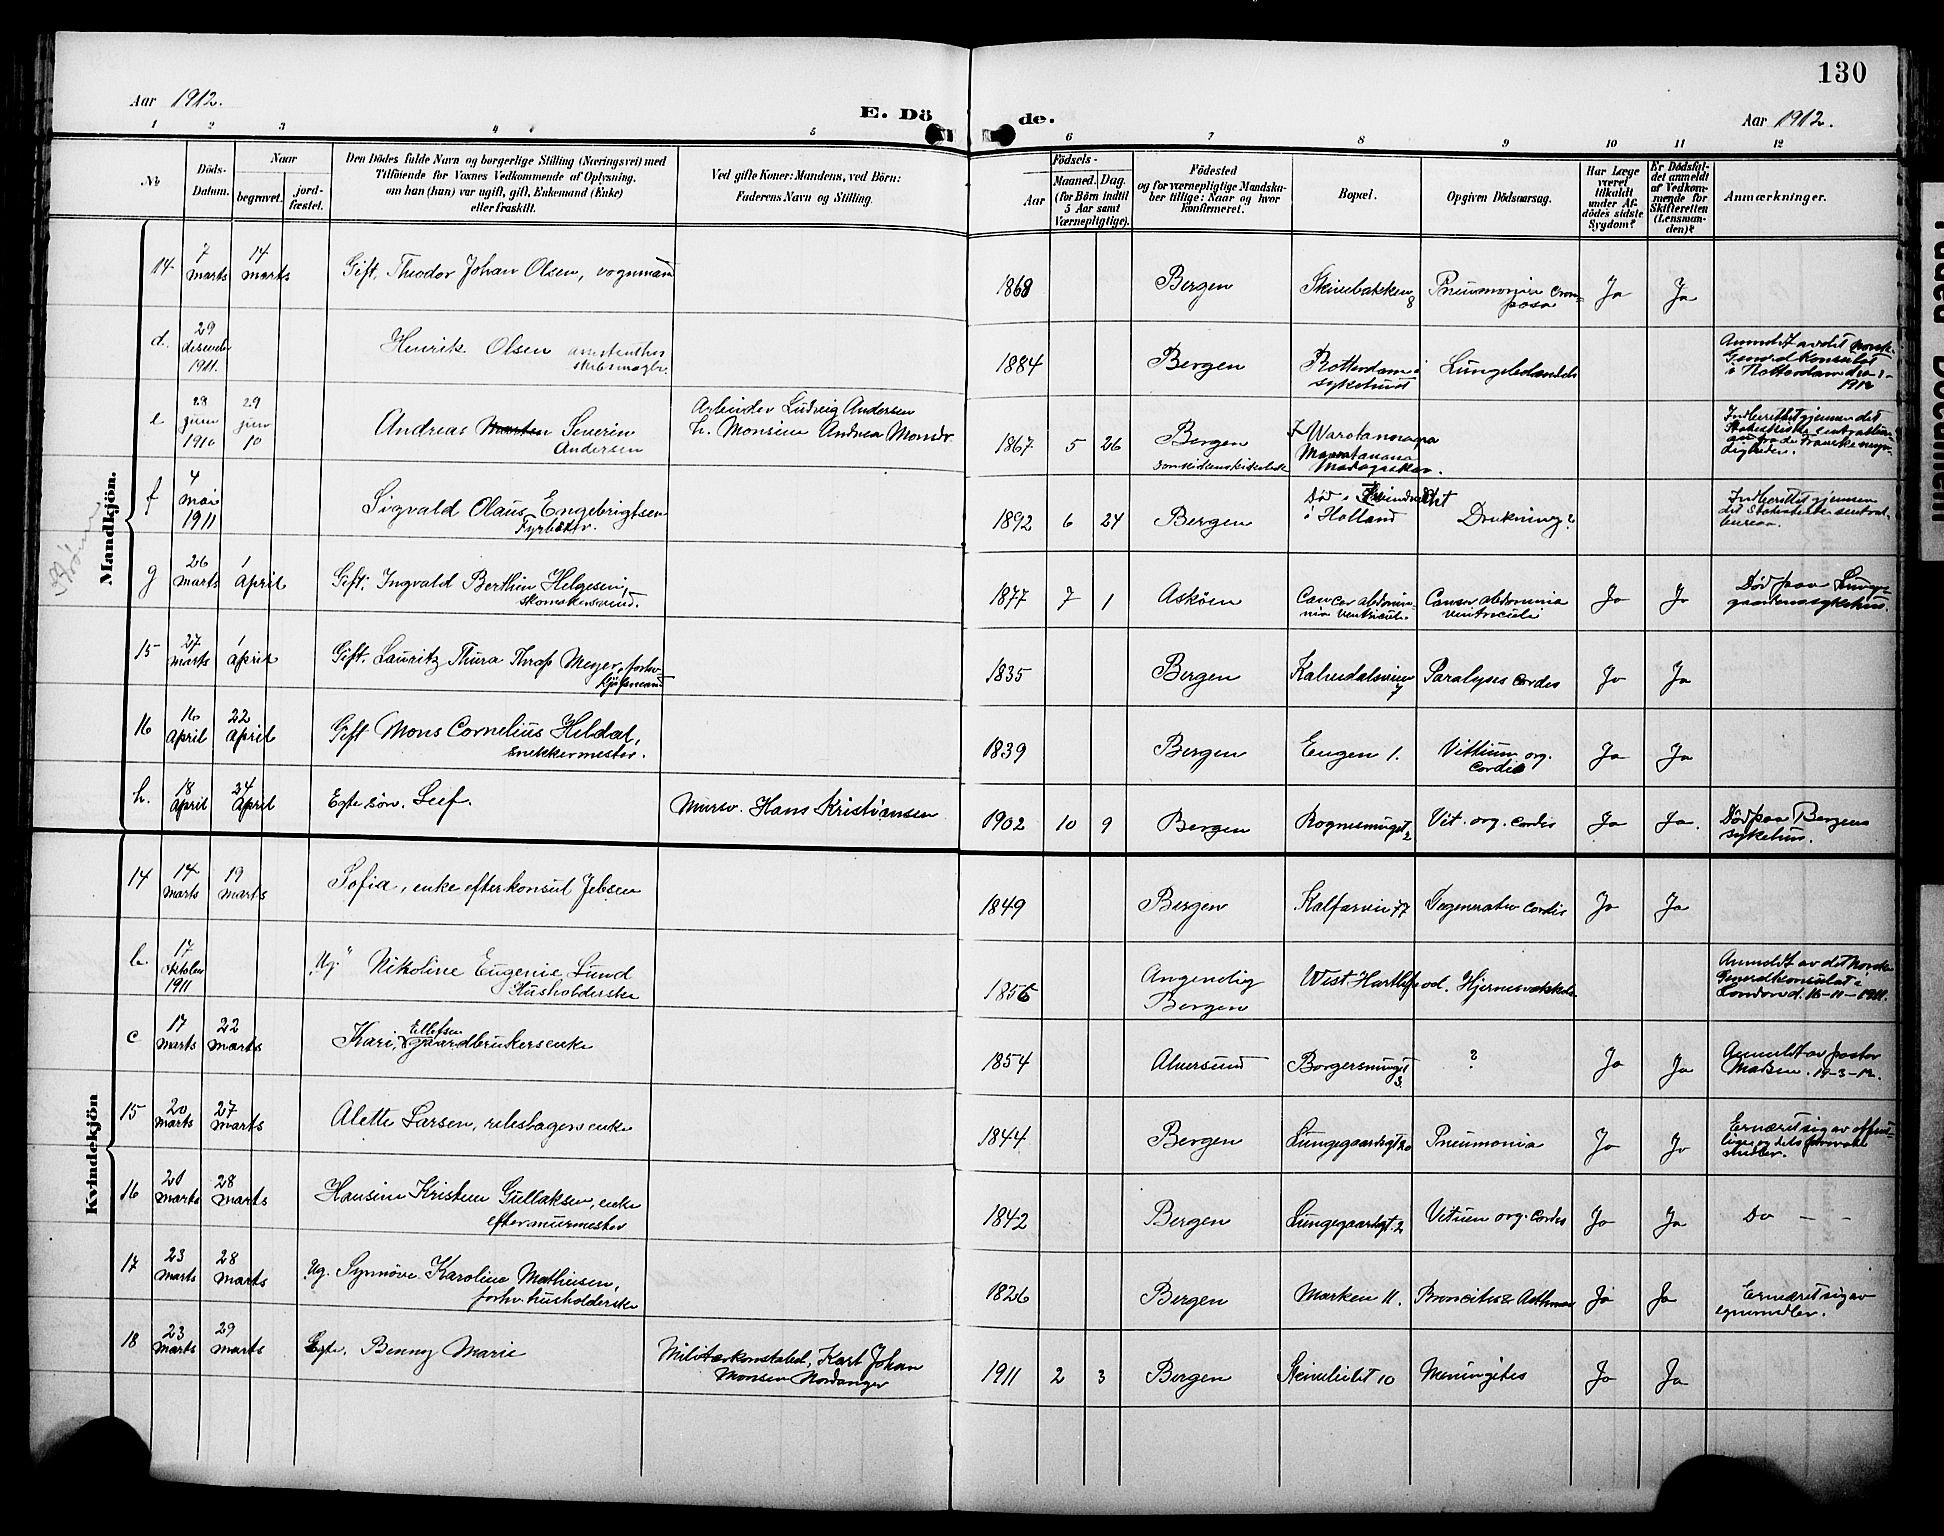 130
Aar 1912.
E. Dö de.
Aar 1912.
1 2 3 4 5 6 7 8 9 10 11 12
No
Döds-Datum.
Naar
begravet.
jord-fæstet.
Den Dödes fulde Navn og borgerlige Stilling (Næringsvei) med
Tilföiende for Voxnes Vedkommende af Oplysning,
om han (hun) var ugift, gift, Enkemand (Enke)
eller fraskilt.
Ved gifte Koner: Mandens, ved Börn:
Faderens Navn og Stilling.
Födsels-
Aar
Maaned. Dag.
(for Börn indtil
5 Aar samt
Værnepligtige).
Födested
og for værnepligtige Mandska-
ber tillige: Naar og hvor
konfirmeret.
Bopæl.
Opgiven Dödsaarsag.
Har Læge
været
tilkaldt
under Af-
dödes sidste
Sygdom?
Er Dödsfal-
det anmeldt
af Vedkom-
mende for
Skifteretten
(Lensman-
den)?
Anmærkninger.
Mandkjön.
14 7 marts 14 marts Gift. Theodor Johan Olsen, vognmand 1868 Bergen Skivebakken 8 Pneumonia Ja Ja
d. 29 1911. Henrik Olsen 1884 Bergen Rotterdam sykehust
Anmeldt av det norske
General Konsulat
i Rotterdam 1912
e 28 juni 1910 29 juni 10 Andreas Severin Andersen Arbeider Ludvig Andersen 1867 5 26 Bergen
Indberettet gjennem det
f 4 mai 1911 Sigvald Olaus Engebrigtsen Fyrbøter. Død i i Holland 1892 6 24 Bergen Drukning?
Indberettet gjennem
det Statistiske sentral-
bureau.
g 26 marts 1 April Gift. Ingvald Berthin Helgesen, 1877 7 1 Askøen Cancer abdominia ventriculi Ja Ja
Død paa Lunge-
gaardenssykehus.
15 27 marts 1 April Gift. Lauritz Thura Thrap Meyer, forhv. kjøbmand 1835 Bergen Kalvedalsveien 7 Paralyses cordis Ja Ja
16 16 April 22 April Gift Mons Cornelius Hildal, snekkermester. 1839 Bergen Engen 1. Vittium org. cordis Ja Ja
h. 18 April 24 April Egte søn. Leif. Mursv. Hans Kristiansen 1902 10 9 Bergen Rognesmuget 2 Vit. org. cordis Ja Ja.
Død paa Bergens
sykehus.
Kvindekjön
14 14 marts 19 marts Sofia, enke efter konsul Jebsen 1849 Bergen Kalfarvei 77 Degeneratio cordis Ja Ja
b. 17 oktober 1911 Ug. Nikoline Eugenie Lund Husholderske 1856 Angivelig Bergen West Hartlepool.
Anmeldt av det norske
Generalkonsulat i
London d. 16-11-1911.
c 17 marts 22 marts Kari, Ellefsen gaardbrukersenke 1854 Alversund Borgersmuget 3 ? Ja Ja
Anmeldt av pastor
Madsen. 19-3-12.
15 20 marts 27 marts Alette Larsen, 1844 Bergen Lungegaardsgt 20 Pneumonia Ja Ja
Ernæret sig av offent-
lige og dels private
midler.
16 20 marts 28 marts Hansine Kristine Gullaksen, enke efter murmester 1842 Bergen Lungegaardsgt. 2 Vitium org. cordis Ja Ja Do - -
17 23 marts 28 marts Ug. Synnøve Karoline Mathiesen, forhv. husholderske 1826 Bergen Marken 11. Broncites & Asthma Ja Ja
Ernæret sig av
egne midler.
18 23 marts 29 marts Egte. Benny Marie Militærkonstabel, Karl Johan Monsen Nordanger 1911 2 3 Bergen 10 Meningites Ja Ja